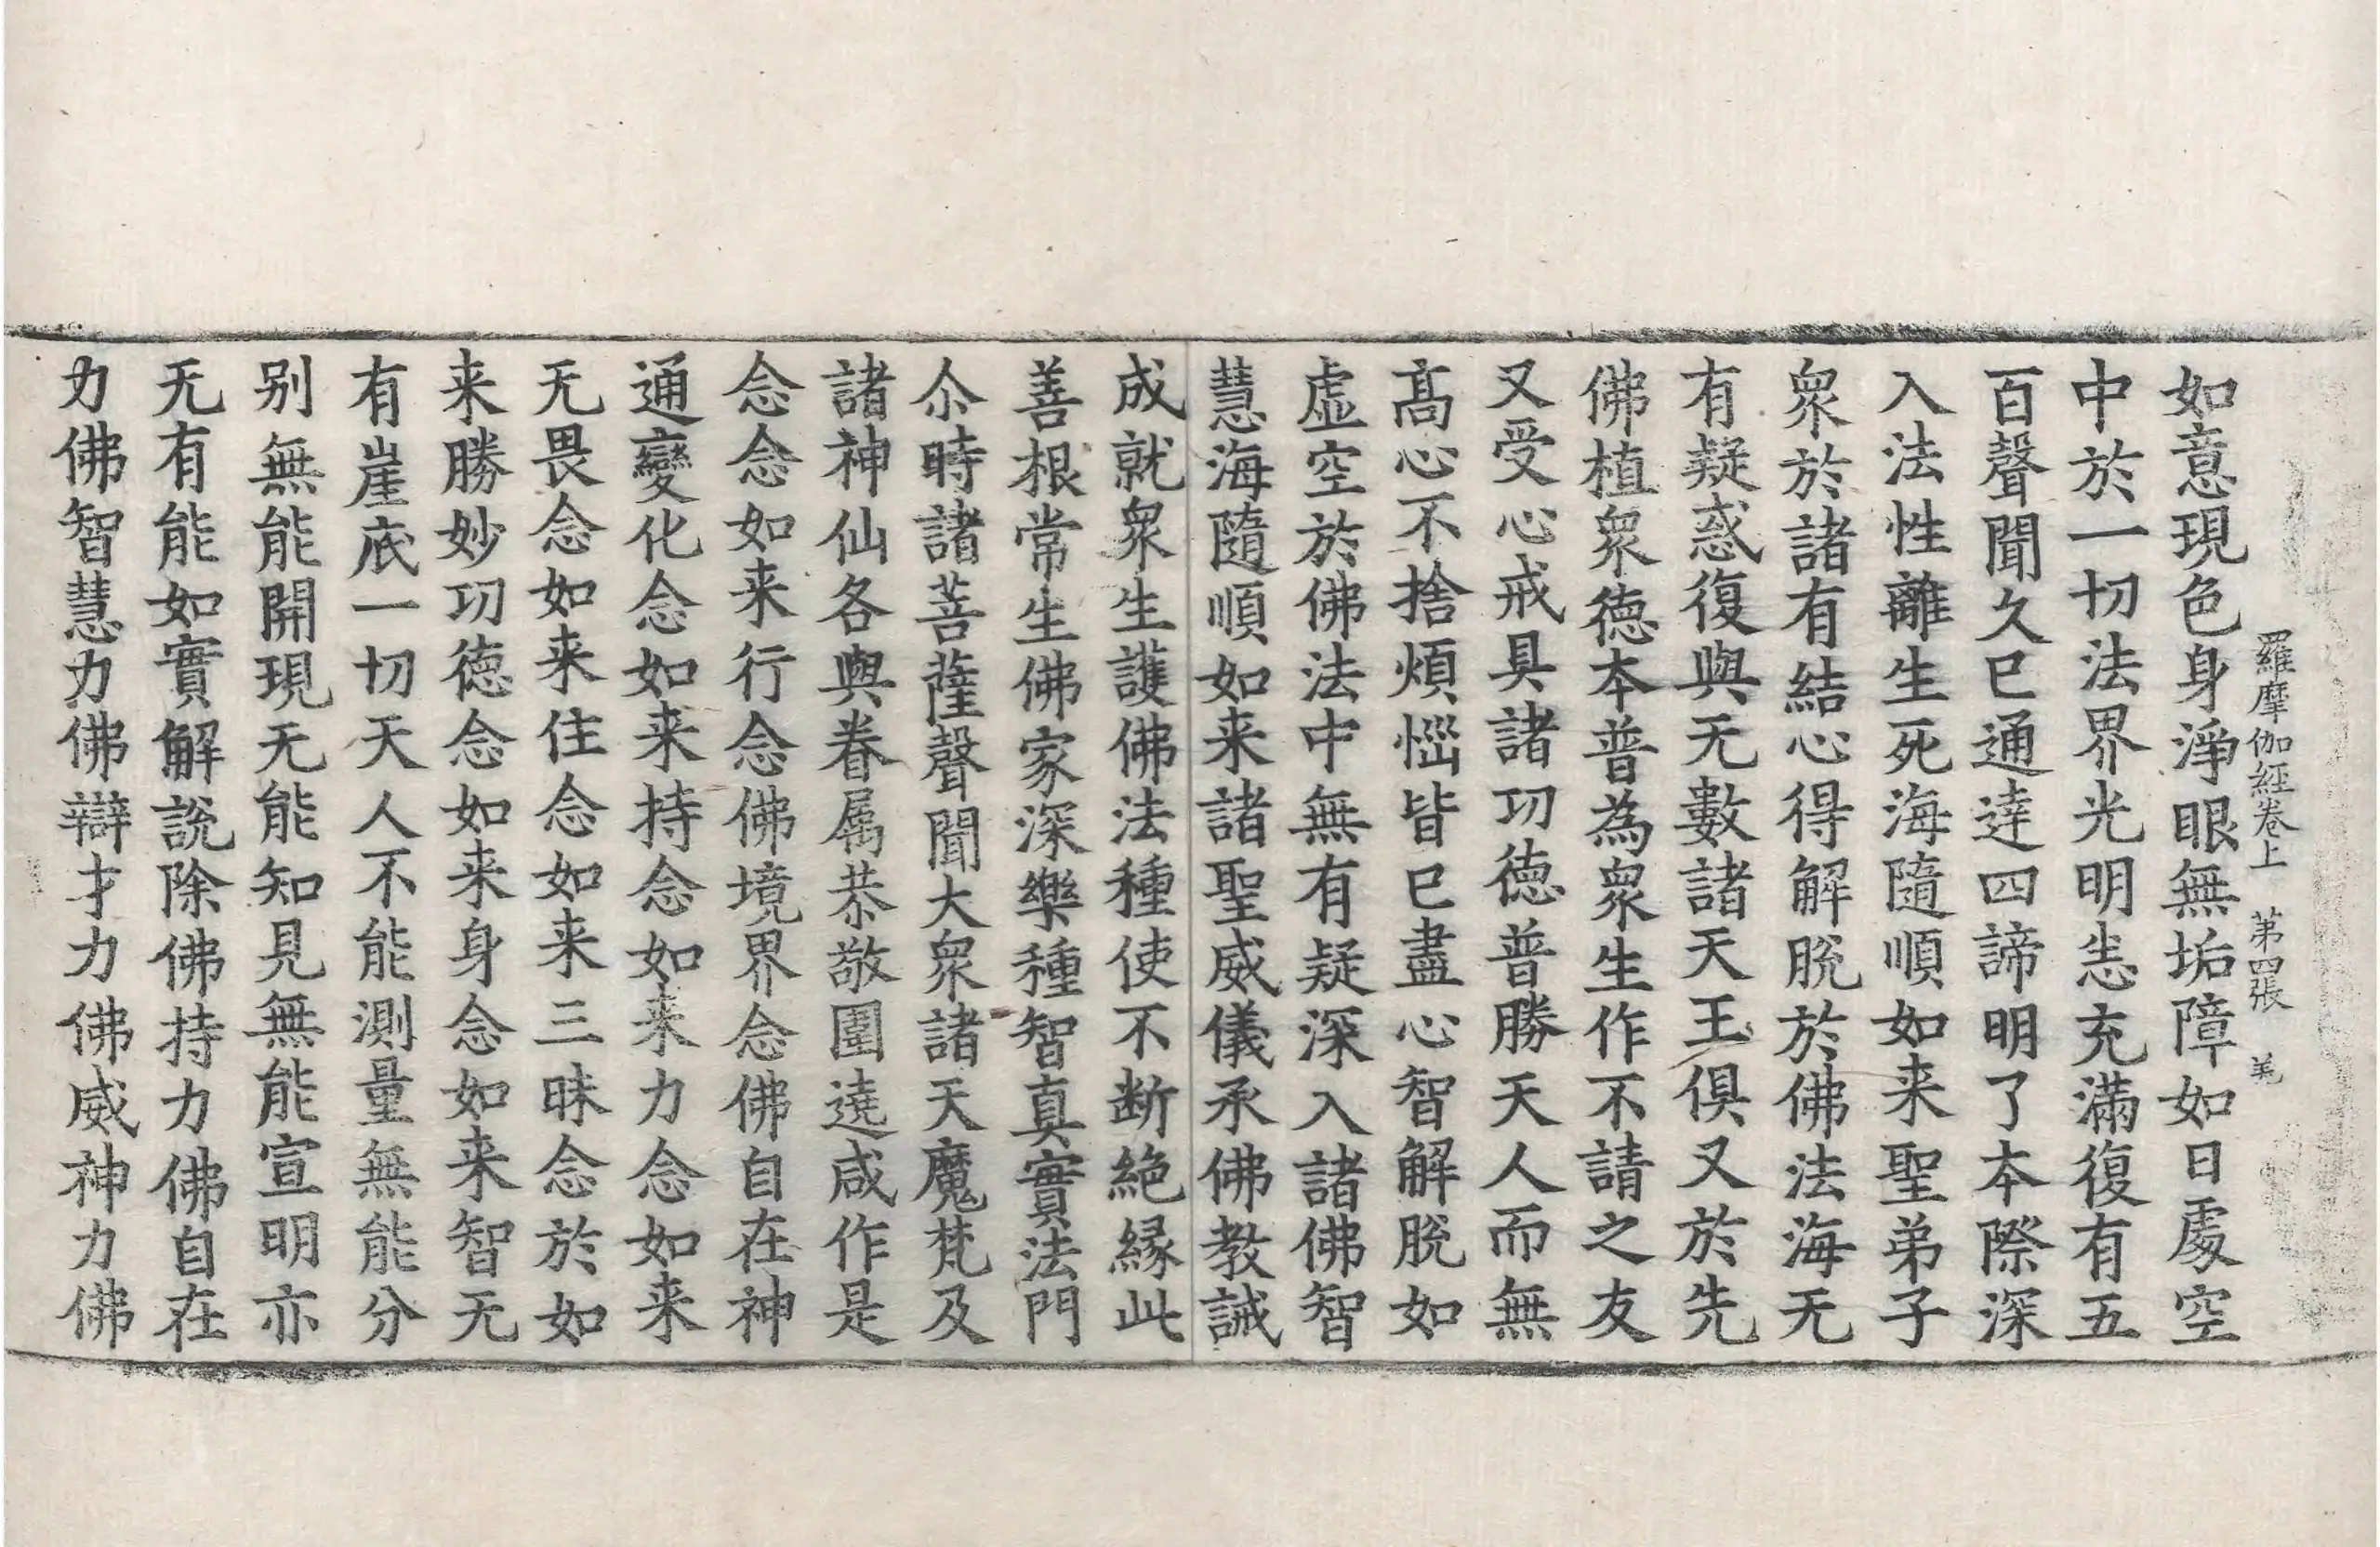 羅摩伽經卷上 苐四張 羌
如意現色身淨眼無垢障如日處空
中於一切法界光明恙充滿復有五
百聲聞久巳通逹四諦明了本際深
入法性離生死海隨順如来聖弟子
衆於諸有結心得解脫於佛法海无
有疑惑復與无數諸天王俱又於先
佛植衆德本普為衆生作不請之友
又受心戒具諸功德普勝天人而無
髙心不捨煩惱皆巳盡心智解脫如
虛空於佛法中無有疑深入諸佛智
慧海隨順如来諸聖威儀承佛教誡
成就衆生護佛法種使不断絶緣此
善根常生佛家深樂種智真實法門
尒時諸菩薩聲聞大衆諸天魔梵及
諸神仙各與眷属恭敬圍遶咸作是
念念如来行念佛境界念佛自在神
通變化念如来持念如来力念如来
无畏念如来住念如来三昧念於如
来勝妙功德念如来身念如来智无
有崖底一切天人不能測量無能分
别無能開現无能知見無能宣明亦
无有能如實解說除佛持力佛自在
力佛智慧力佛辯才力佛威神力佛